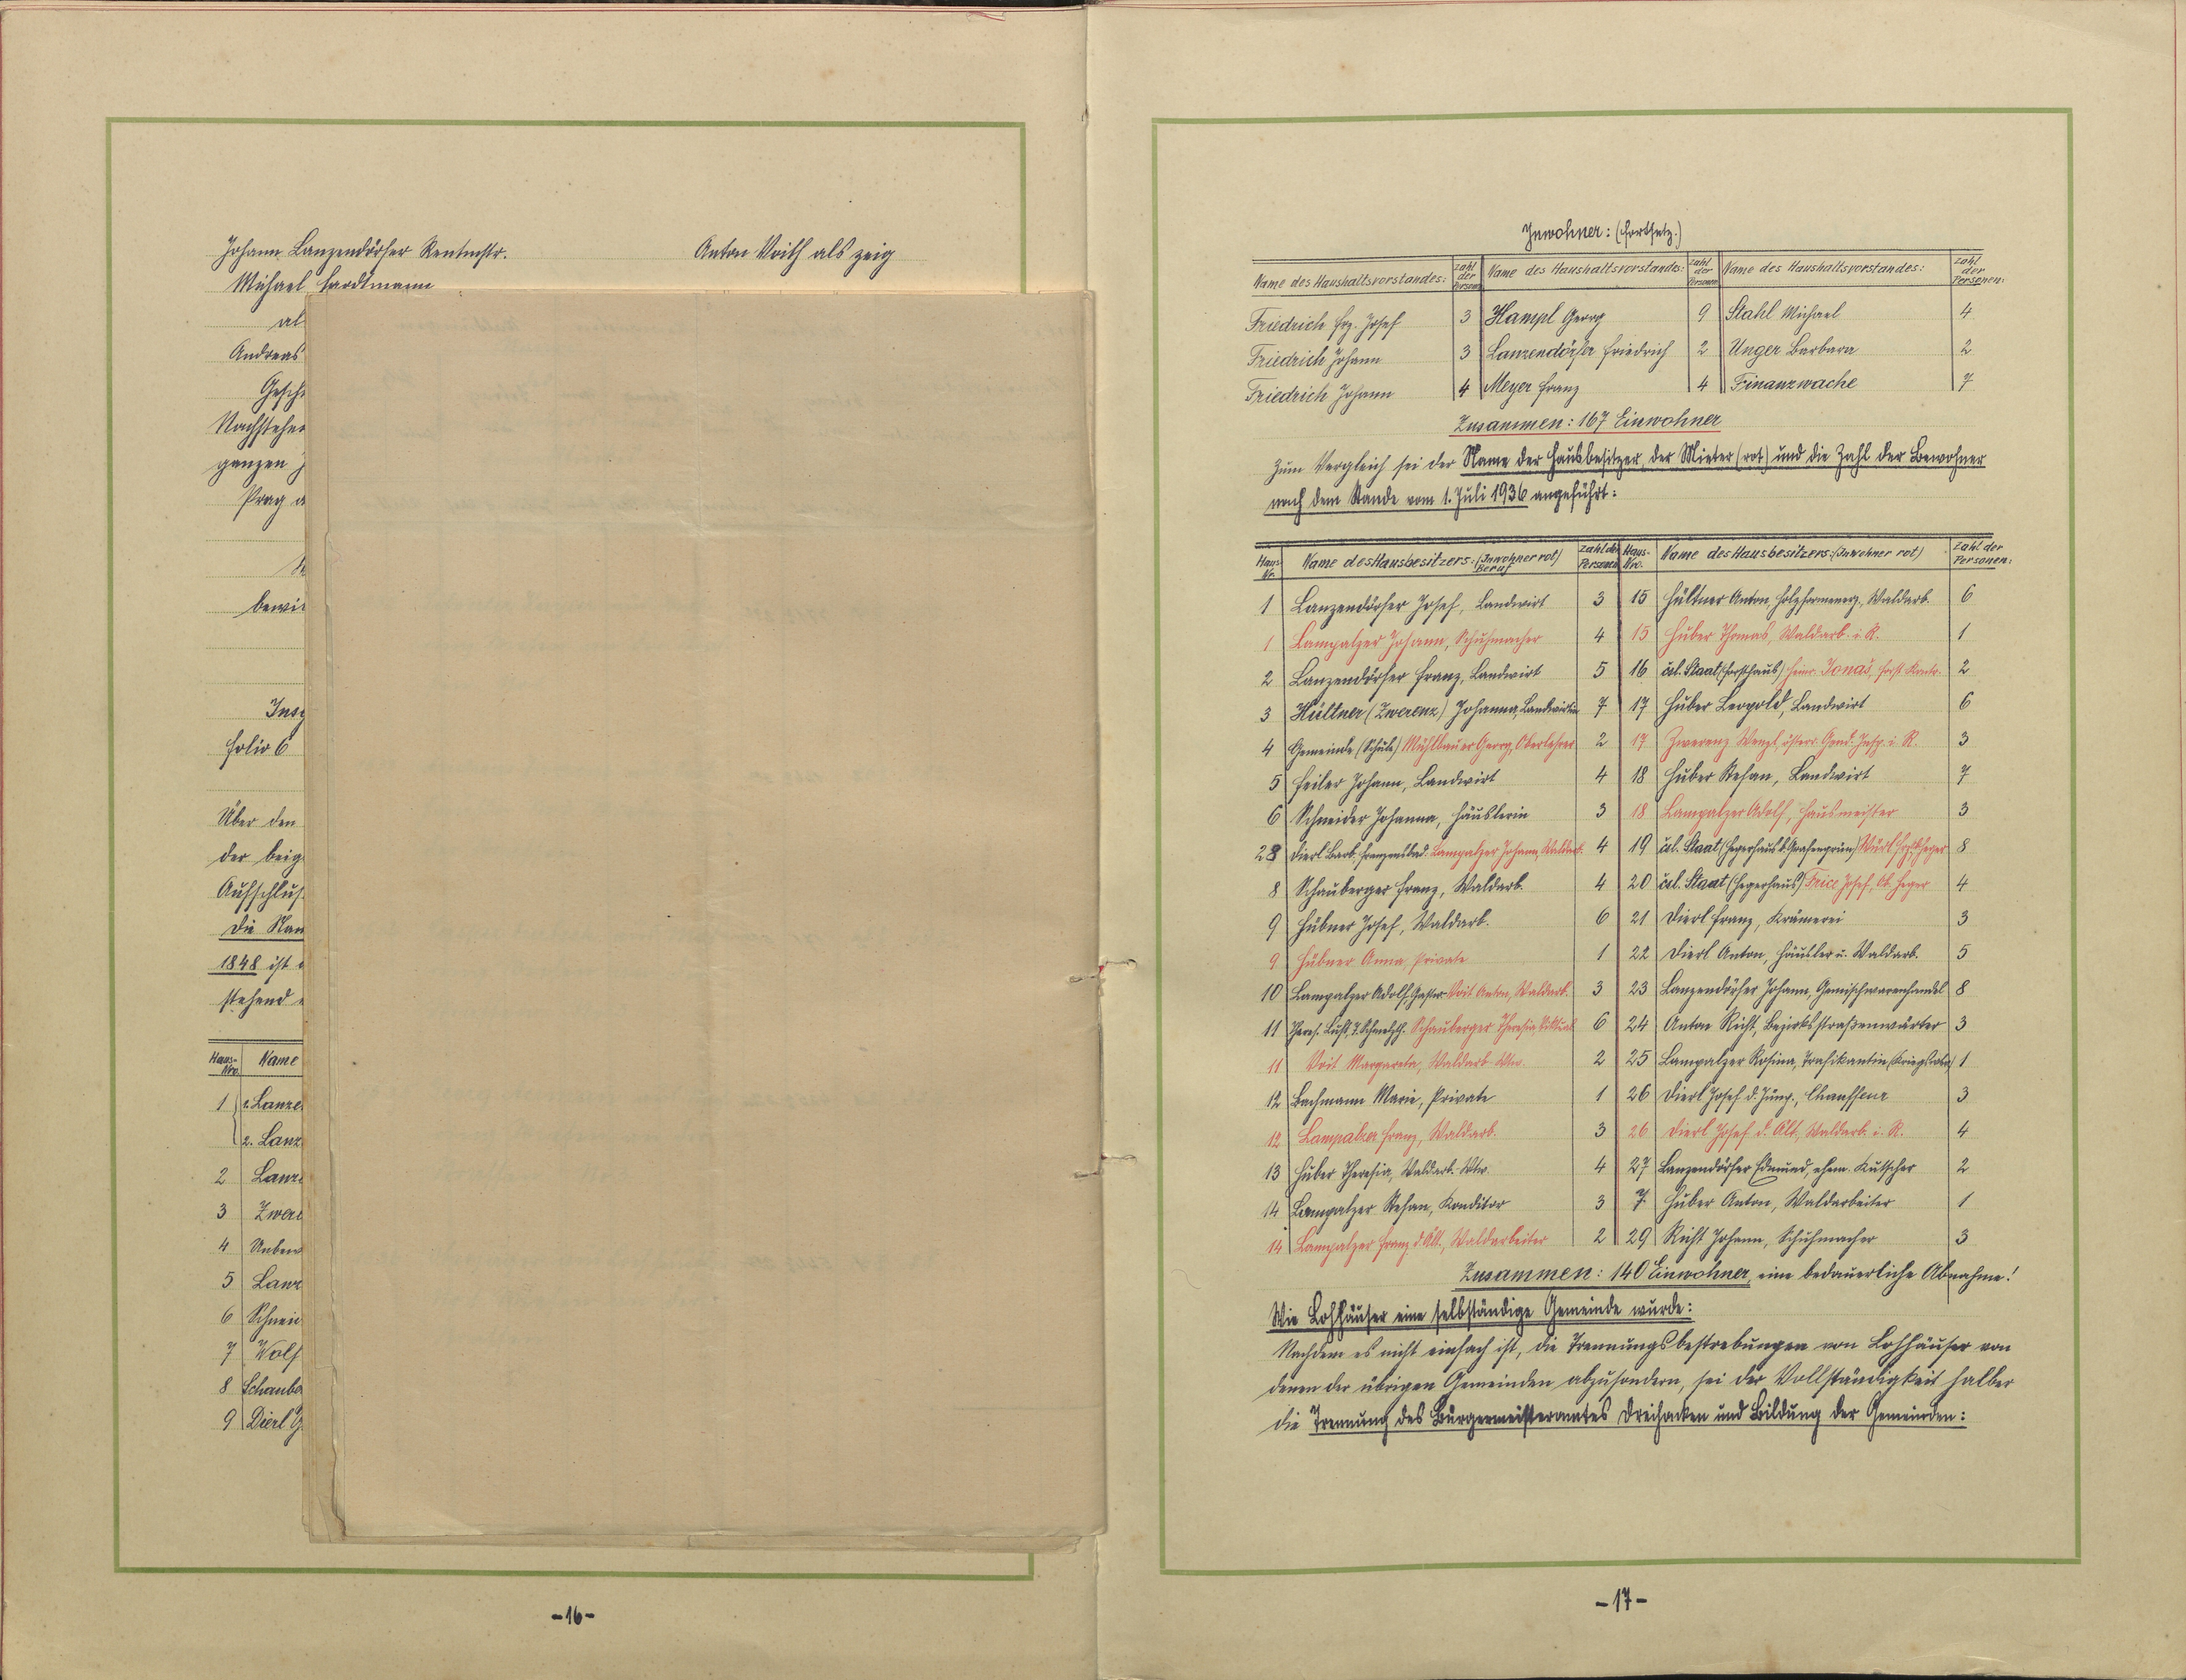 Johann Lanzendörfer Rentmstr. Anton Voith als zeig
Michael Hardtmann
al
Andreas
Gesche
Nachstehen
ganzen J
Prag a
bewie
Insg
Folio 6
Über den
der beig
Aufschluß
Die Nam
1848 ist
stehend
Haus-Nro. Name
1 1. Lanze
2. Lanz
2 Lanz
3 Zwer
4 Unbew
5 Lanz
6 Schnei
7 Wolf
8 Schaube
9 Dierl
-16-
Inwohner: (Fortsetz.)
Name des Haushaltsvorstandes: Zahl der Personen Name des Haushaltsvorstandes: Zahl der Personen Name des Haushaltsvorstandes: Zahl der Personen:
Friedrich Frz. Josef 3 Hampl Georg 9 Stahl Michael 4
Friedrich Johann 3 Lanzendörfer Friedrich 2 Unger Barbara 2
Friedrich Johann 4 Meyer Franz 4 Finanzwache 7
Zusammen: 167 Einwohner
Zum Vergleich sei der Name der Hausbesitzer, der Mieter (rot) und die Zahl der Bewohner
nach dem Stande vom 1. Juli 1936 angeführt:
Haus-Nr. Name des Hausbesitzers: (Inwohner rot) Beruf Zahl der Personen Haus-Nro. Name des Hausbesitzers: (Inwohner rot) Zahl der Personen:
1 Lanzendörfer Josef, Landwirt 3 15 Hüttner Anton, Holzformenerz., Waldarb. 6
1 Lampalzer Johann, Schuhmacher 4 15 Huber Thomas, Waldarb. i. R. 1
2 Lanzendörfer Franz, Landwirt 5 16 čsl. Staat (Forsthaus) Heinr. Jonaš, Forst Kontr. 2
3 Hüttner (Zwerenz) Johanna, Landwirtin 7 17 Huber Leopold, Landwirt 6
4 Gemeinde (Schule) Mühlbauer Georg, Oberlehrer 2 17 Zwerenz Wenzl, österr. Gend. Insp. i. R. 3
5 Feiler Johann, Landwirt 4 18 Huber Stefan, Landwirt 7
6 Schneider Johanna, Häuslerin 3 18 Lampalzer Adolf, Hausmeister 3
28 Dierl Barb. Franzensbad. Lampalzer Johann, Waldarb. 4 19 čsl. Staat (Hegerhaus d. Grafengrün) Heger 8
8 Schauberger Franz, Waldarb. 4 20 čsl. Staat (Hegerhaus) Frice Josef, Ob. Heger 4
9 Hübner Josef, Waldarb. 6 21 Dierl Franz, Krämerei 3
9 Hübner Anna, Private 1 22 Dierl Anton, Häusler u. Waldarb. 5
10 Lampalzer Adolf, Voit Anton, Waldarb. 3 23 Lanzendörfer Johann, Gemischwarenhandel 8
11 Schauberger Theresia 6 24 Anton Richt, Bezirksstraßenwärter 3
11 Voit Margareta, Waldarb. Wtw. 2 25 Lampalzer Rosina, Trafikantin (Kriegswtw.) 1
12 Bachmann Marie, Private 1 26 Dierl Josef d. Jüng., Chauffeur 3
12 Lampalzer Franz, Waldarb. 3 26 Dierl Josef d. Ält., Waldarb. i. R. 4
13 Huber Theresia, Waldarb.-Wtw. 4 27 Lanzendörfer Edmund, ehem. Kutscher 2
14 Lampalzer Stefan, Konditor 3 7. Huber Anton, Waldarbeiter 1
14 Lampalzer Franz d. Ält., Waldarbeiter 2 29 Richt Johann, Schuhmacher 3
Zusammen: 140 Einwohner, eine bedauerliche Abnahme!
Wie Lohhäuser eine selbständige Gemeinde wurde:
Nachdem es nicht einfach ist, die Trennungsbestrebungen von Lohhäuser von
denen der übrigen Gemeinden abzusondern, sei der Vollständigkeit halber
die Trennung des Bürgermeisteramtes Dreihacken und Bildung der Gemeinden:
-17-